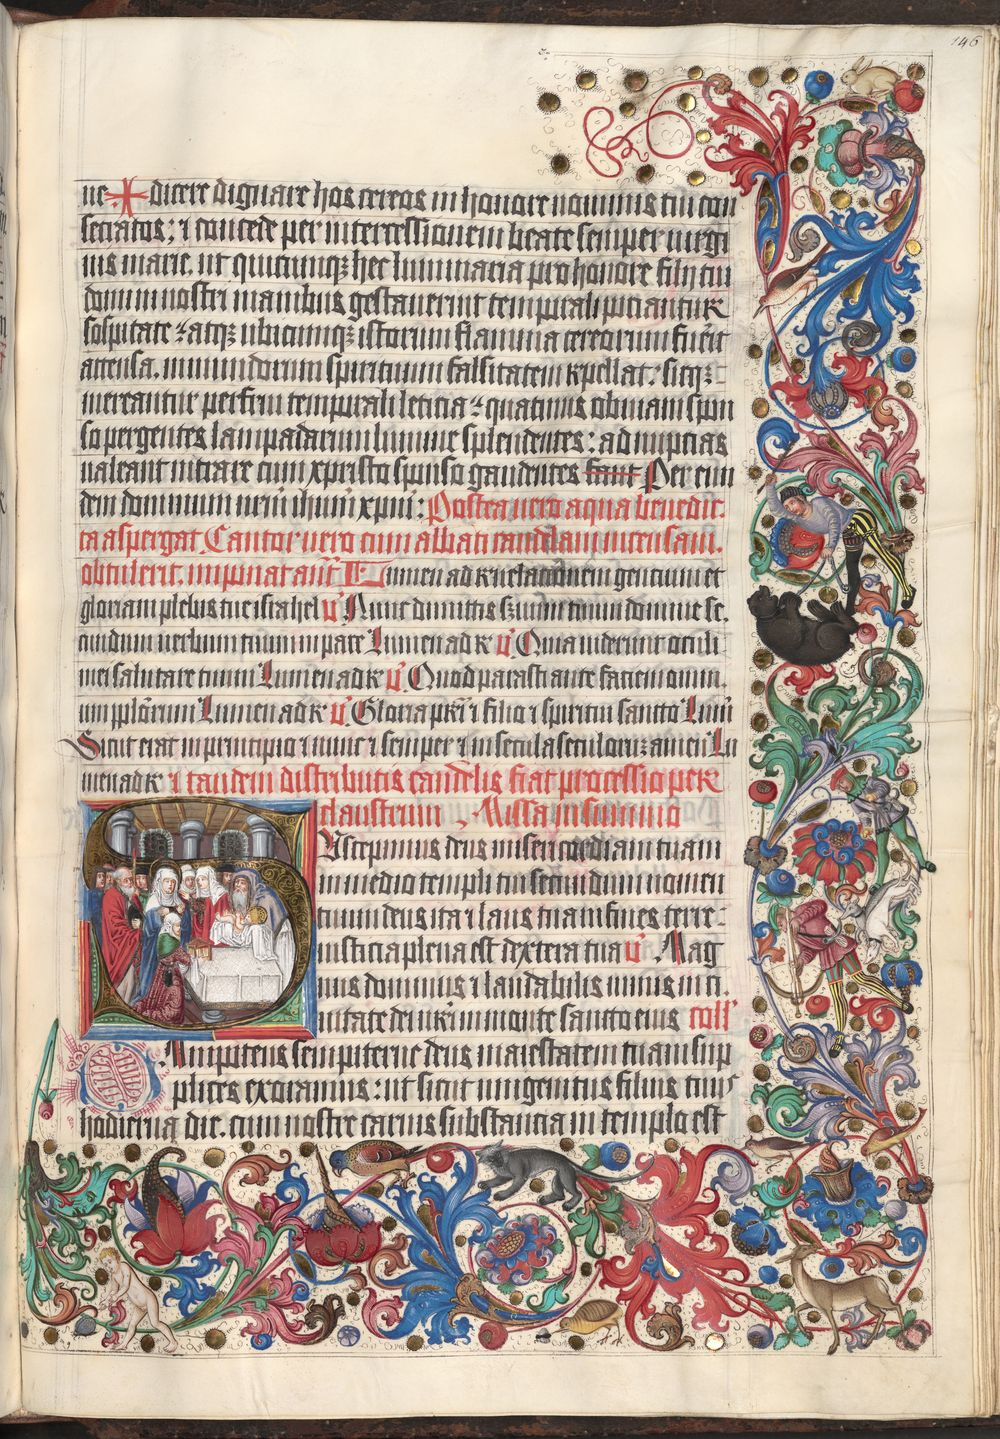 146
ne ✠ dicere dignare hos cereos in honore nominis tui con
secratos; ⁊ concede per intercessionem beate semper uirgi
nis marie. ut quicunqꝫ hec luminaria pro honore filij tui
domini nostri manibus gestauerint temporali pociantur
sospitate ⁊ atqꝫ ubicumqꝫ istorum flamma cereorum fuerit
accensa. inmundorum spirituum falsitatem expellat; sicqꝫ
mereantur perfrui temporali leticia ⁊ quatinus obuiam spon
so pergentes lampadarum lumine splendentes; ad nupcias
ualeant intrare cum xpristo sponso gaudentes sunt Per eun
dem dominum nrm̄ ihm̄ xpm̄: Postea uero aqua benedic
ta aspergat. Cantor uero cum albati candelam incensam.
obtulerit. inponat an̄t Lumen ad reuelationem gentium et
gloriam plebis tue israhel v̄. Nunc dimittis seruum tuum domine se
cundum uerbum tuum in pace Lumen ad r v̄. Quia uiderunt oculi
mei salutare tuum Lumen ad r v̄. Quod parasti ante faciem omni
um pplōrum Lumen ad r v̄. Gloria pr̄i ⁊ filio ⁊ spiritui sancto Lum̄
Sicut erat in principio ⁊ nunc ⁊ semper ⁊ in secula seculorum amen Lu
men ad r ⁊ tandem distributis candelis fiat processio per
claustrum. Missa
Suscepimus deus misericordiam tuam
in medio templi tui secundum nomen
tuum deus ita ⁊ laus tua in fines terre:
iusticia plena est dextera tua v̄. Mag
nus dominus ⁊ laudabilis nimis in ci
uitate dei nr̄i in monte sancto eius coll'
Omnipotens sempiterne deus maiestatem tuam sup
plices exoramus: ut sicut unigenitus filius tuus
hodierna die. cum nostre carnis substancia in templo est